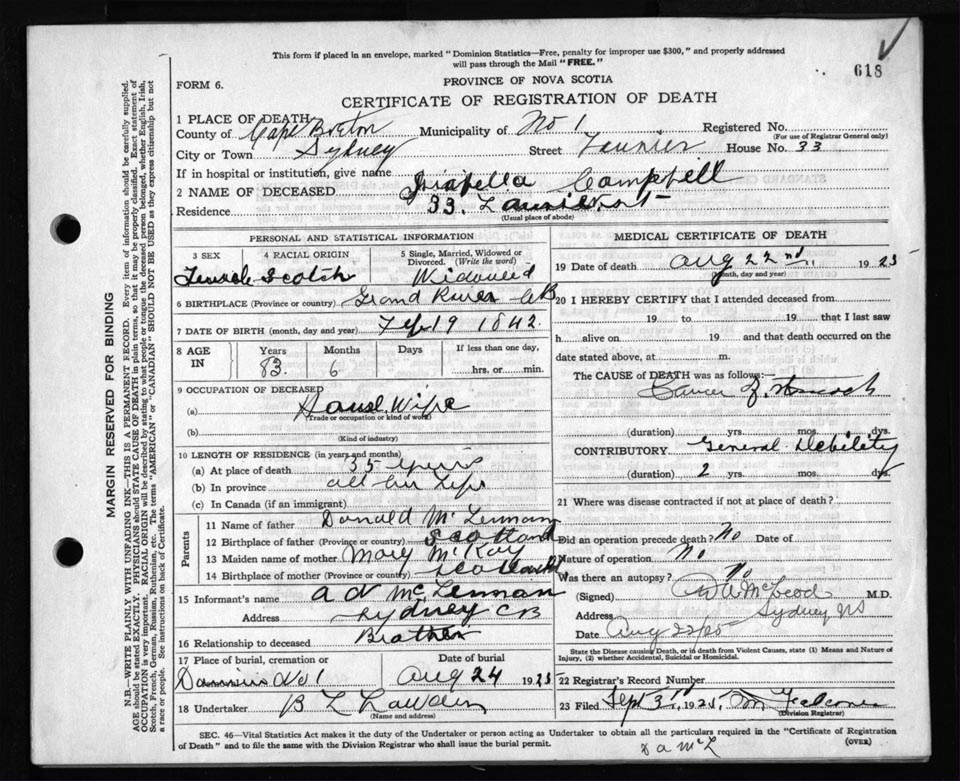 This form if placed in an envelope, marked "Dominion Statistics—Free, penalty for improper use $300," and properly addressed
will pass through the Mail "FREE."
618
FORM 6.
PROVINCE OF NOVA SCOTIA
CERTIFICATE OF REGISTRATION OF DEATH
1 PLACE OF DEATH
County of Cape Breton Municipality of No 1 Registered No.
(For use of Registrar General only)
City or Town Sydney Street House No. 33
If in hospital or institution, give name
2 NAME OF DECEASED Isabella Campbell
Residence 33
(Usual place of abode)
PERSONAL AND STATISTICAL INFORMATION
3 SEX 4 RACIAL ORIGIN 5 Single, Married, Widowed or
Divorced. (Write the word)
Female Scotch Widowed
6 BIRTHPLACE (Province or country) Grand River CB
7 DATE OF BIRTH (month, day and year) Feb 19 1842
8 AGE IN Years Months Days If less than one day,
83 6 hrs. or min.
9 OCCUPATION OF DECEASED
(a) House Wife
(Trade or occupation or kind of work)
(b)
(Kind of industry)
10 LENGTH OF RESIDENCE (in years and months)
(a) At place of death 35 years
(b) In province all her life
(c) In Canada (if an immigrant)
Parents
11 Name of father Donald McLennan
12 Birthplace of father (Province or country) Scotland
13 Maiden name of mother Mary McKay
14 Birthplace of mother (Province or country) Scotland
15 Informant's name A D McLennan
Address Sydney CB
16 Relationship to deceased Brother
17 Place of burial, cremation or Date of burial
No 1 Aug 24 1925
18 Undertaker B L
(Name and address)
MEDICAL CERTIFICATE OF DEATH
19 Date of death Aug 22nd 1925
(Month, day and year)
20 I HEREBY CERTIFY that I attended deceased from
19 to 19 that I last saw
h alive on 19 and that death occurred on the
date stated above, at m.
The CAUSE of DEATH was as follows:
Cancer of Stomach
(duration) yrs. mos. dys.
CONTRIBUTORY General Debility
(duration) 2 yrs. mos. dys.
21 Where was disease contracted if not at place of death?
Did an operation precede death? No Date of
Nature of operation No
Was there an autopsy? No
(Signed) McLeod M.D.
Address Sydney NS
Date Aug 22/25
State the Disease causing Death, or in death from Violent Causes, state (1) Means and Nature of
Injury, (2) whether Accidental, Suicidal or Homicidal.
22 Registrar's Record Number
23 Filed Sept 3rd, 1925,
(Division Registrar)
SEC. 46—Vital Statistics Act makes it the duty of the Undertaker or person acting as Undertaker to obtain all the particulars required in the "Certificate of Registration
of Death" and to file the same with the Division Registrar who shall issue the burial permit.
(OVER)
D A McL
MARGIN RESERVED FOR BINDING
N.B.—WRITE PLAINLY WITH UNFADING INK—THIS IS A PERMANENT RECORD. Every item of information should be carefully supplied.
AGE should be stated EXACTLY. PHYSICIANS should STATE CAUSE OF DEATH in plain terms, so that it may be properly classified. Exact statement of
OCCUPATION is very important. RACIAL ORIGIN will be described by stating to what people or tongue the deceased person belonged, whether English, Irish,
Scotch, French, German, Russian, Ruthenian, etc. The terms "AMERICAN" or "CANADIAN" SHOULD NOT BE USED as they express citizenship but not
a race or people. See instructions on back of Certificate.